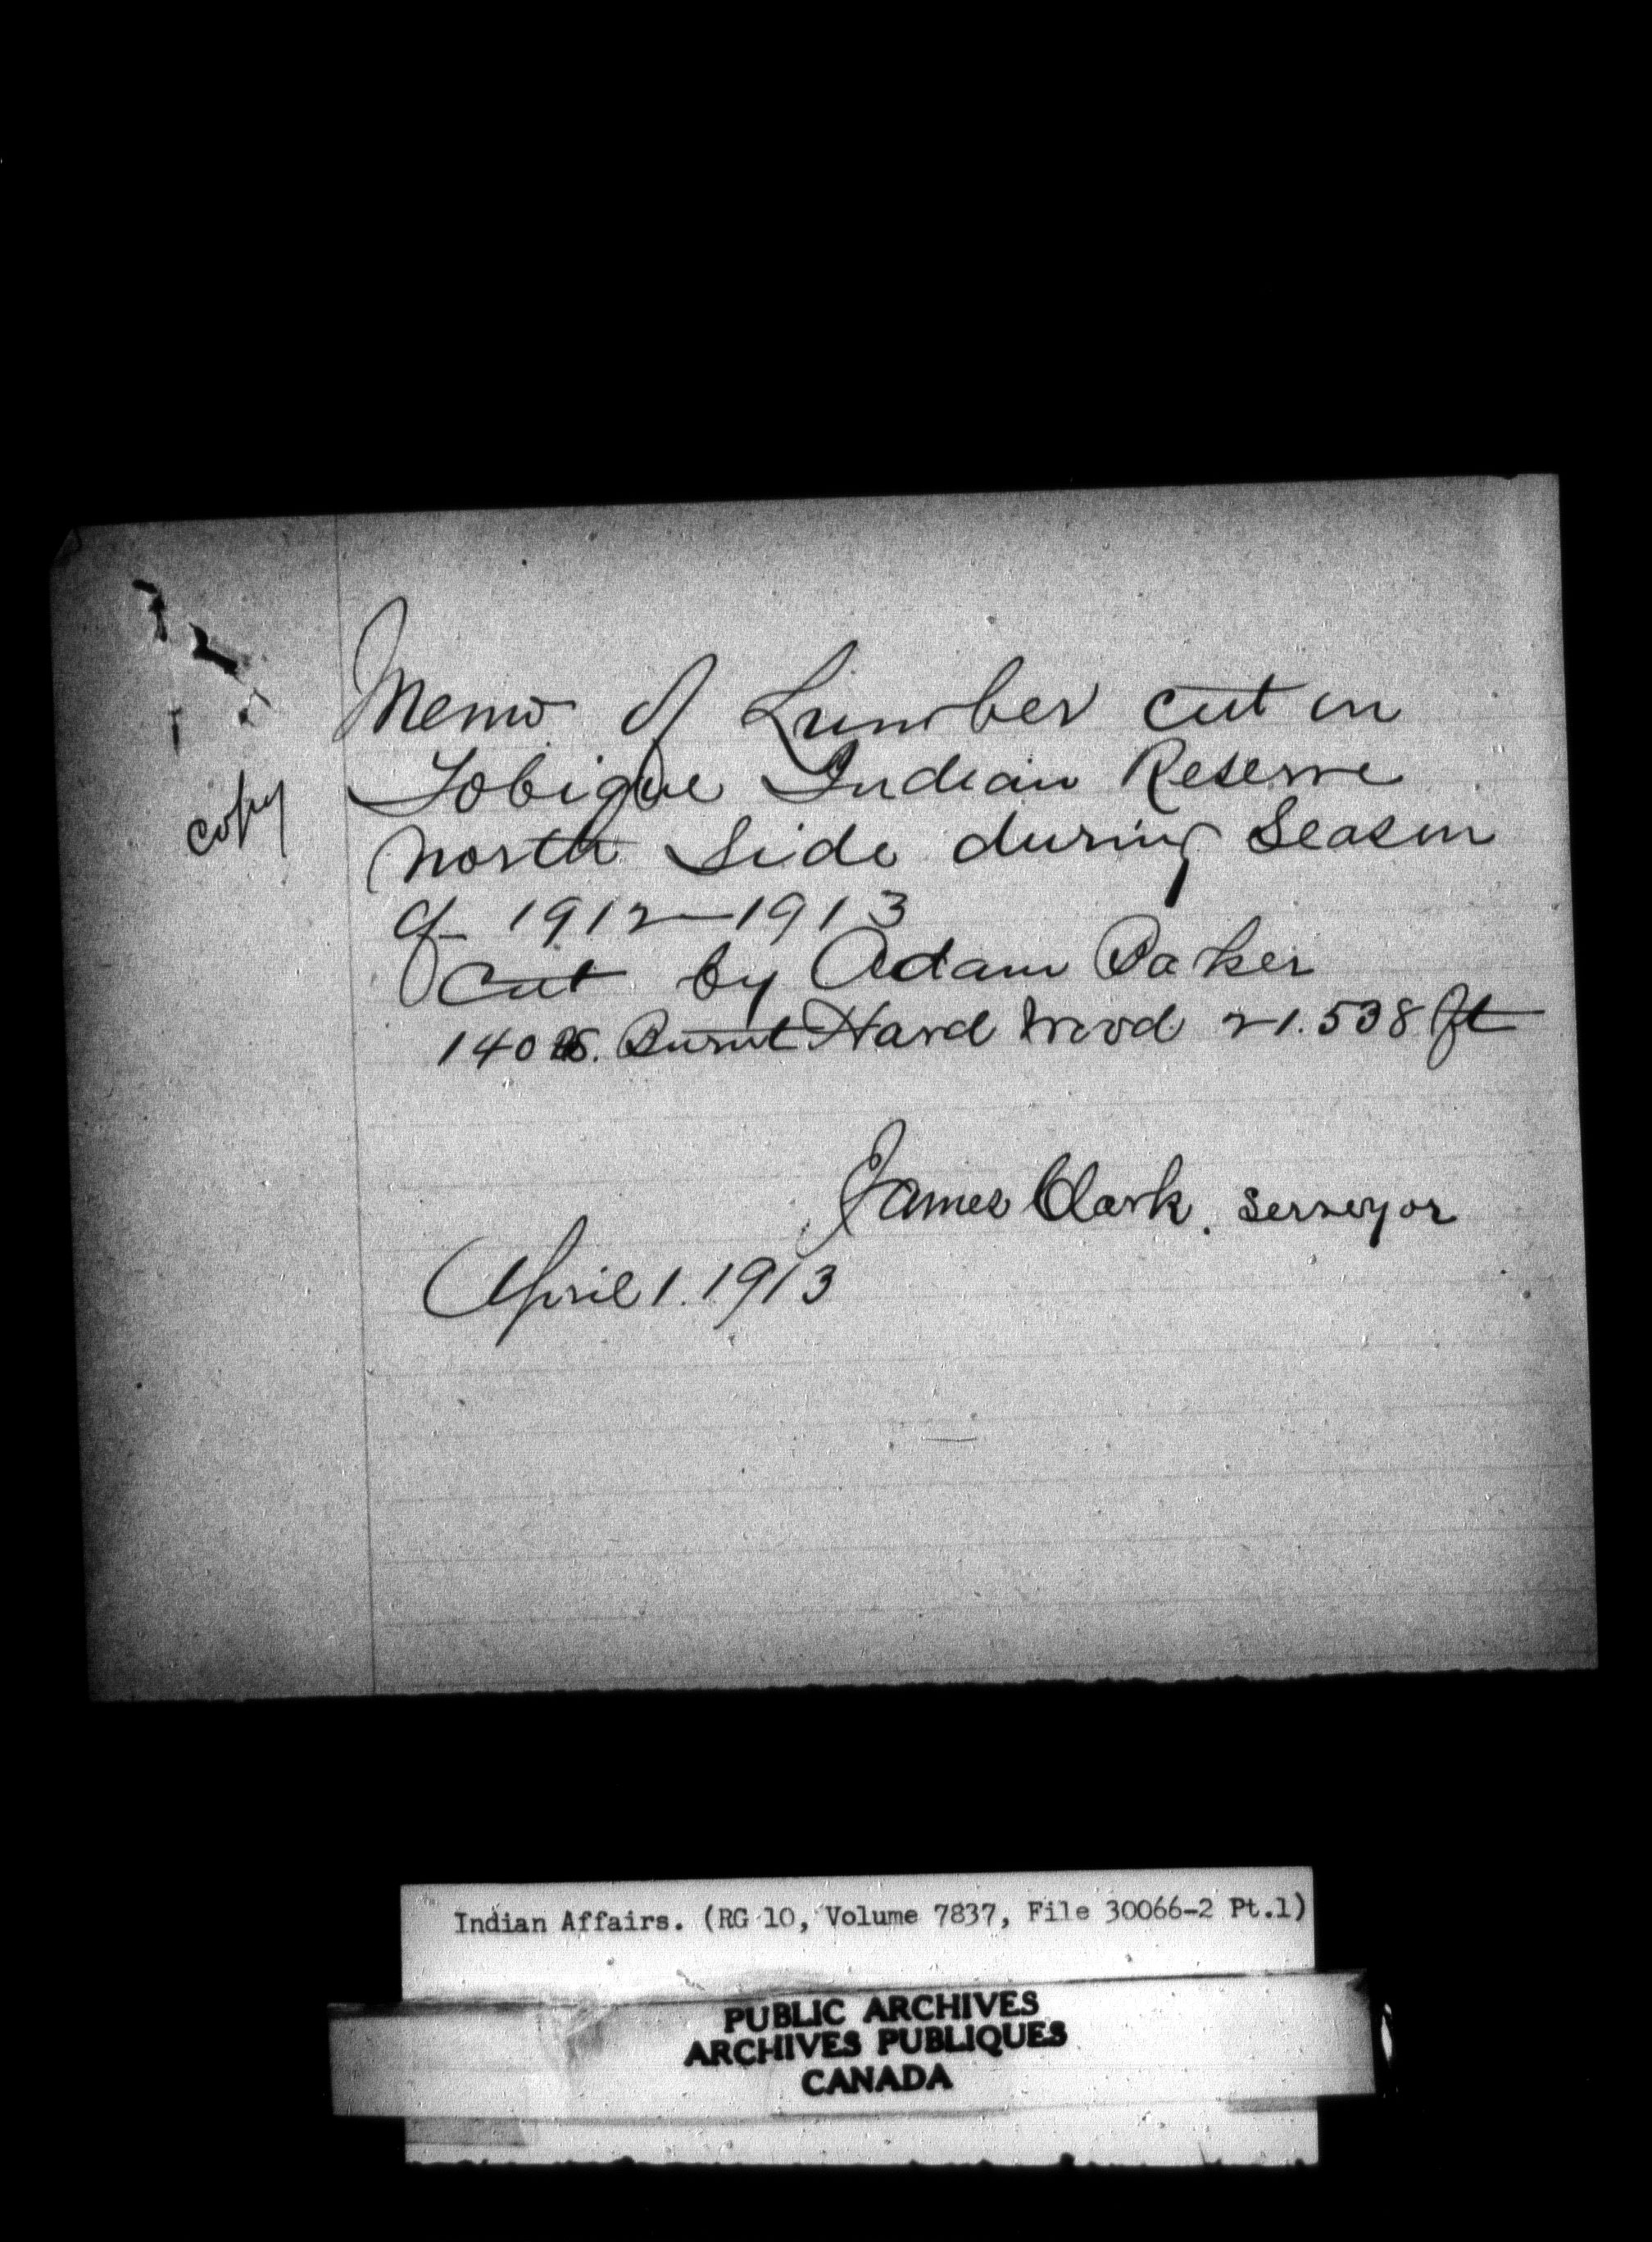 copy
Memo of Lumber cut on
Tobique Indian Reserve
North Side during Season
of 1912-1913
Cut by Adam Baker
140 Burnt Hard Wood 21.538 ft
James Clark. Serveyor
April 1. 1913
Indian Affairs. (RG 10, Volume 7837, File 30066-2 Pt.1)
PUBLIC ARCHIVES
ARCHIVES PUBLIQUES
CANADA